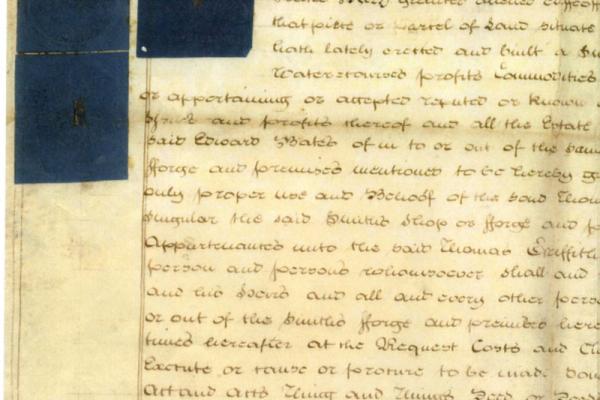 granted aliened
that piece or parcel of Land situate
hath lately erected and built a
Watercourses profits Commodities
or appertaining or accepted reputed or known
and profits thereof and all the Estate
said Edward Bates of in to or out of the
fforge and premises mentioned to be hereby
only proper use and Behoof of the said
Singular the said Smiths Shop or fforge and
Appurtenances unto the said Thomas Griffith
person and persons whomsoever shall and
and his Heirs and all and every other
or out of the Smiths fforge and premises
times hereafter at the Request Costs and
Execute or cause or procure to be made
Act and Acts Thing and Things Deed or